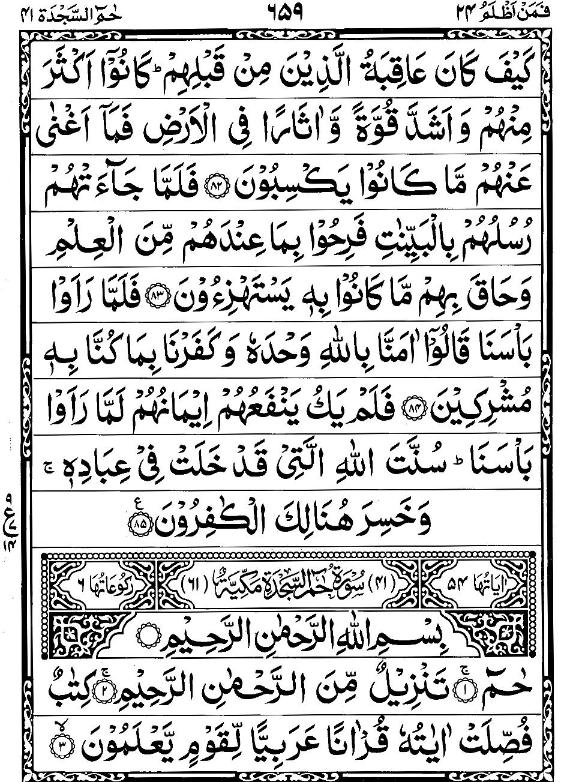 فمن اظلم ٢٤ ٦٥٩ حٰم السجدة ٤١
كَيْفَ كَانَ عَاقِبَةُ الَّذِيْنَ مِنْ قَبْلِهِمْ ؕ كَانُوْۤا اَكْثَرَ
مِنْهُمْ وَ اَشَدَّ قُوَّةً وَّ اٰثَارًا فِی الْاَرْضِ فَمَاۤ اَغْنٰی
عَنْهُمْ مَّا كَانُوْا يَكْسِبُوْنَ ﴿٨٢﴾ فَلَمَّا جَآءَتْهُمْ
رُسُلُهُمْ بِالْبَيِّنٰتِ فَرِحُوْا بِمَا عِنْدَهُمْ مِّنَ الْعِلْمِ
وَحَاقَ بِهِمْ مَّا كَانُوْا بِهٖ يَسْتَهْزِءُوْنَ ﴿٨٣﴾ فَلَمَّا رَاَوْا
بَاْسَنَا قَالُوْۤا اٰمَنَّا بِاللّٰهِ وَحْدَهٗ وَ كَفَرْنَا بِمَا كُنَّا بِهٖ
مُشْرِكِيْنَ ﴿٨٤﴾ فَلَمْ يَكُ يَنْفَعُهُمْ اِيْمَانُهُمْ لَمَّا رَاَوْا
بَاْسَنَا ؕ سُنَّتَ اللّٰهِ الَّتِیْ قَدْ خَلَتْ فِیْ عِبَادِهٖ ۚ
وَ خَسِرَ هُنَالِكَ الْكٰفِرُوْنَ ﴿٨٥﴾ ع
اٰياتها ٥٤ (٤١) سُوْرَةُ حٰمٓ السَّجْدَةِ مَكِّيَّةٌ (٦١) ركوعاتها ٦
بِسْمِ اللّٰهِ الرَّحْمٰنِ الرَّحِيْمِ
حٰمٓ ﴿١﴾ ۚ تَنْزِيْلٌ مِّنَ الرَّحْمٰنِ الرَّحِيْمِ ﴿٢﴾ ۚ كِتٰبٌ
فُصِّلَتْ اٰيٰتُهٗ قُرْاٰنًا عَرَبِيًّا لِّقَوْمٍ يَّعْلَمُوْنَ ﴿٣﴾ ۙ